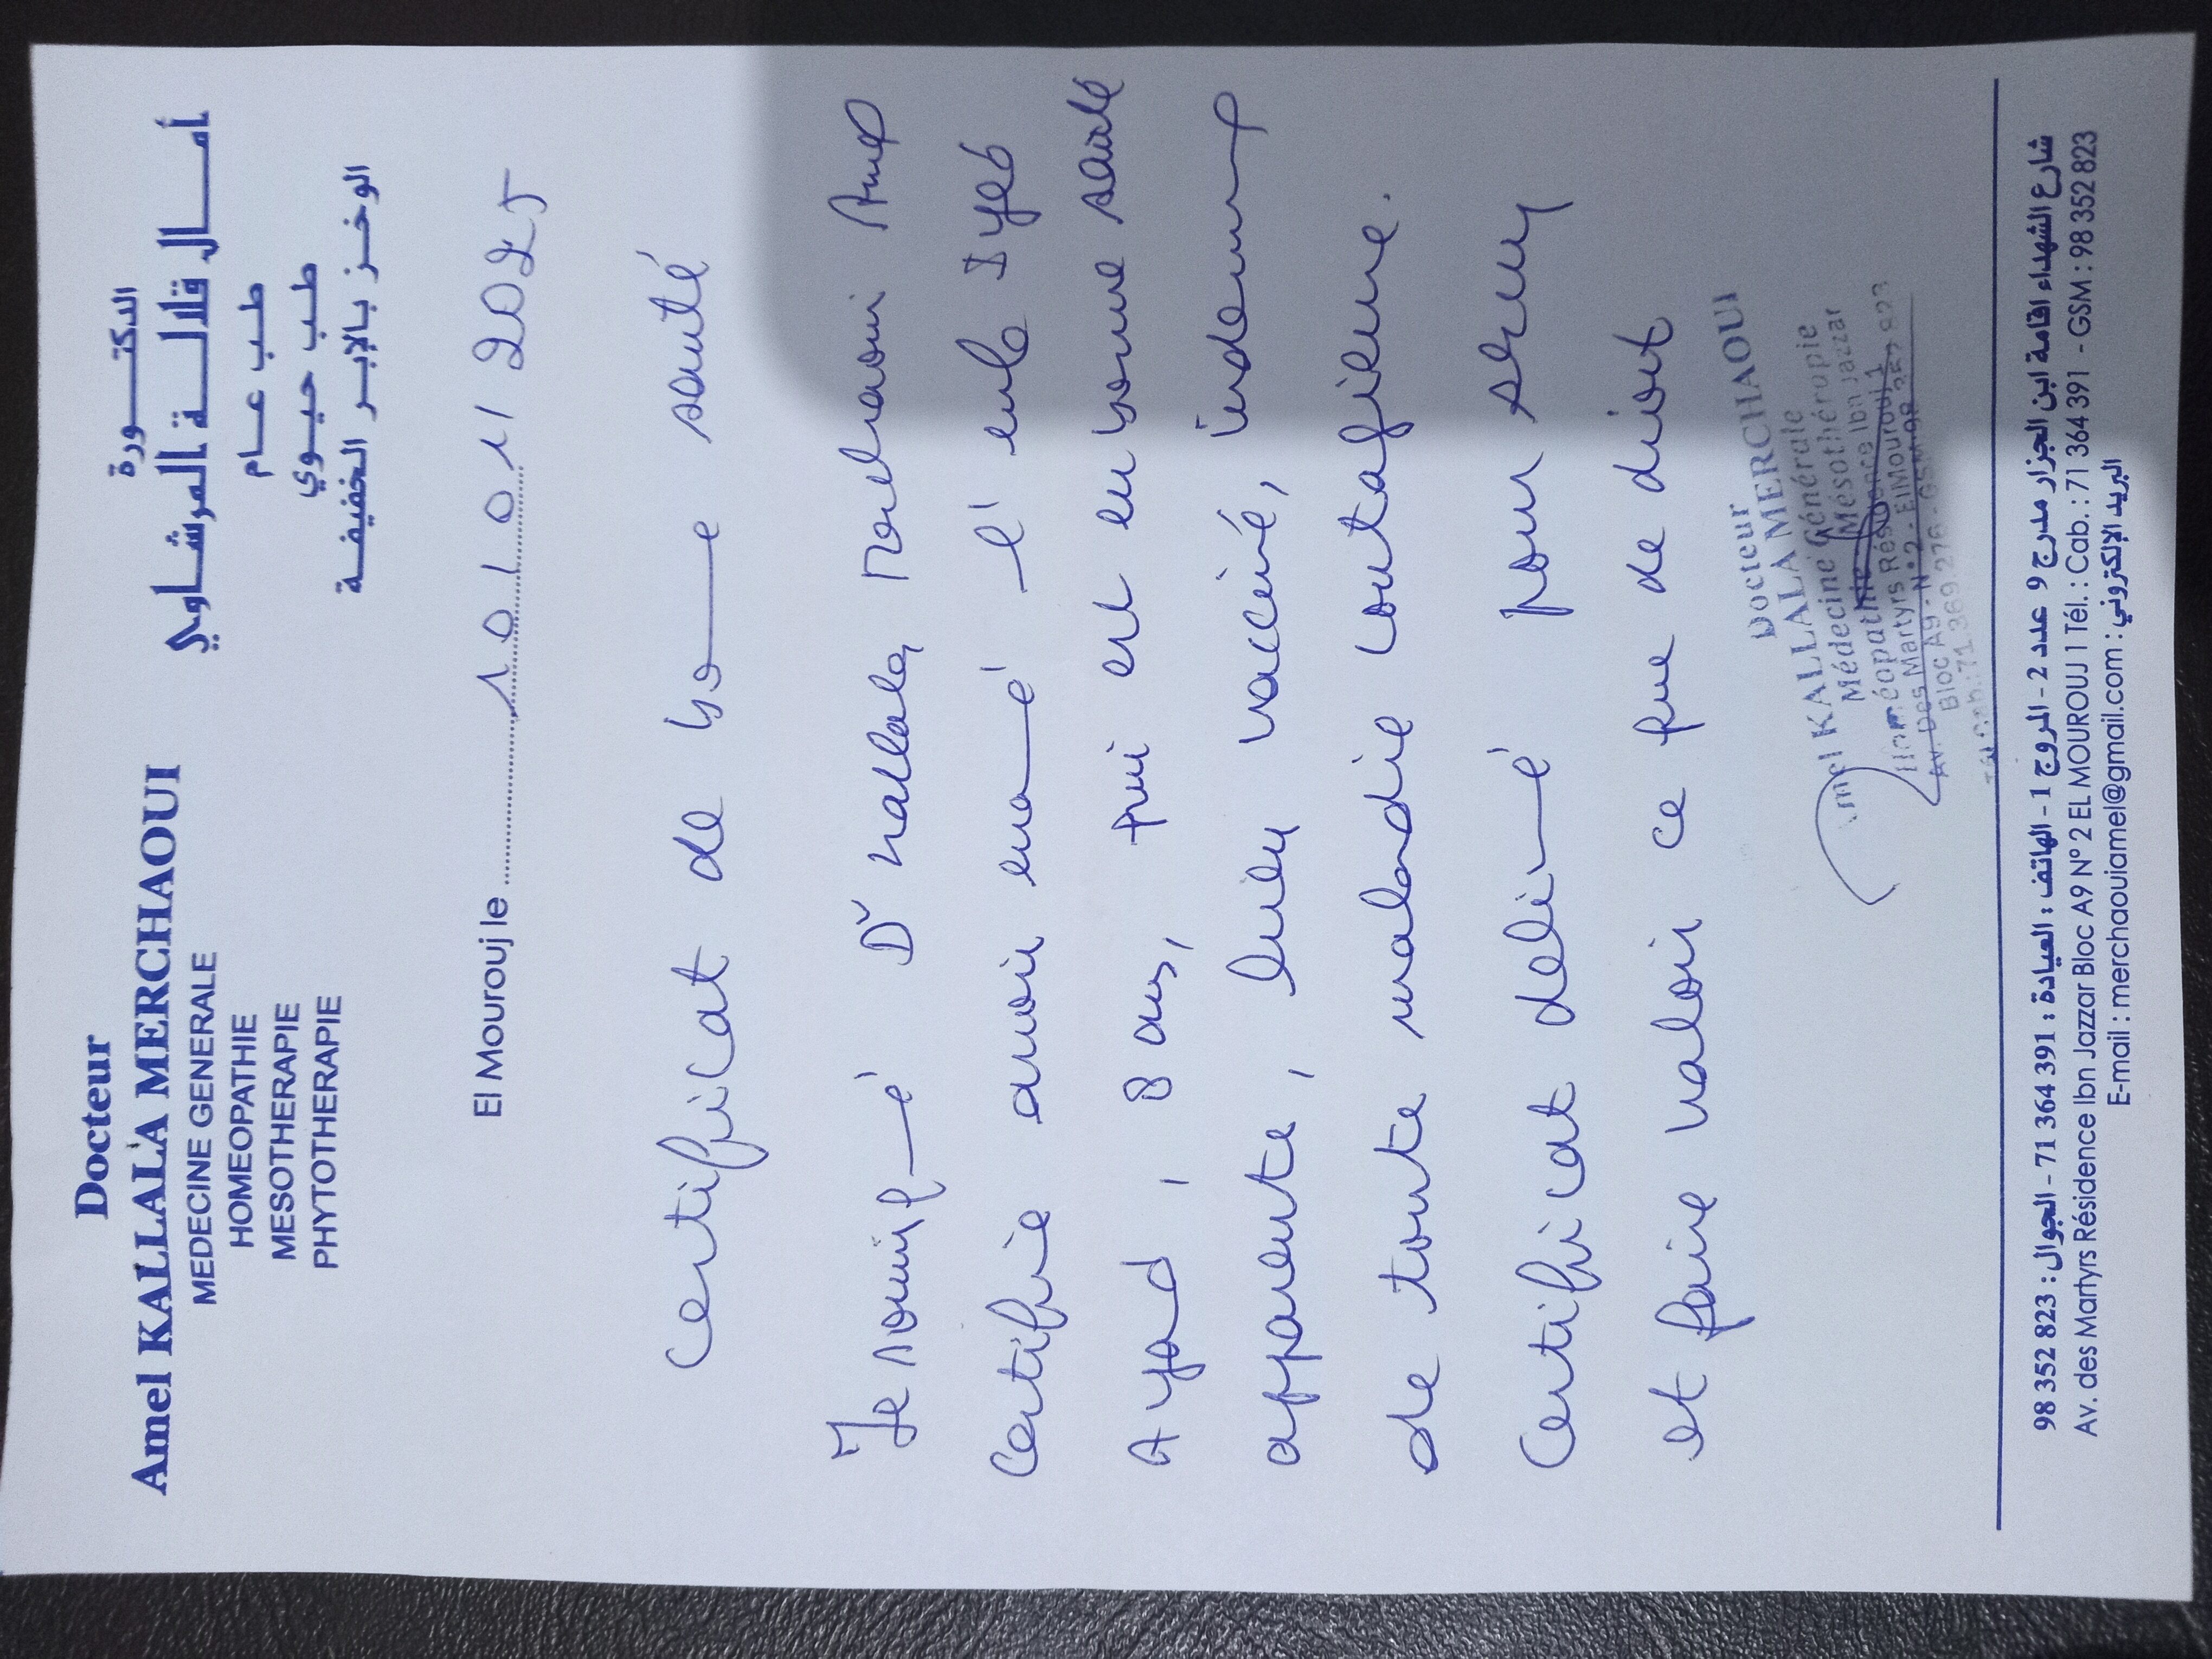 Docteur
Amel KALLALA MERCHAOUI
MEDECINE GENERALE
HOMEOPATHIE
MESOTHERAPIE
PHYTOTHERAPIE
الدكتـــــورة
أمـــــال قلالـــة المرشـاوي
طـب عــام
طـب حيـوي
الوخـز بـالإبـر الخفيفـة
El Mourouj le 10/01/2025
Certificat de bonne santé
Je soussigné Dr Kallala Merchaoui Amel
Certifie avoir examiné l'enfant Iyed
Ayad, 8 ans, qui est en bonne santé
apparente, bien vacciné, indemne
de toute maladie contagieuse.
Certificat délivré pour servir
et faire valoir ce que de droit
Docteur
Amel KALLALA MERCHAOUI
Médecine Générale
Homéopathie Mésothérapie
Av. Des Martyrs Résidence Ibn Jazzar
Bloc A9 - N°2 - El Mourouj 1
شارع الشهداء اقامة ابن الجزار مدرج 9 عدد 2 - المروج 1 - الهاتف : العيادة : 71 364 391 - الجوال : 98 352 823
Av. des Martyrs Résidence Ibn Jazzar Bloc A9 N° 2 EL MOUROUJ 1 Tél. : Cab. : 71 364 391 - GSM : 98 352 823
E-mail : merchaouiamel@gmail.com : البريد الإلكتروني